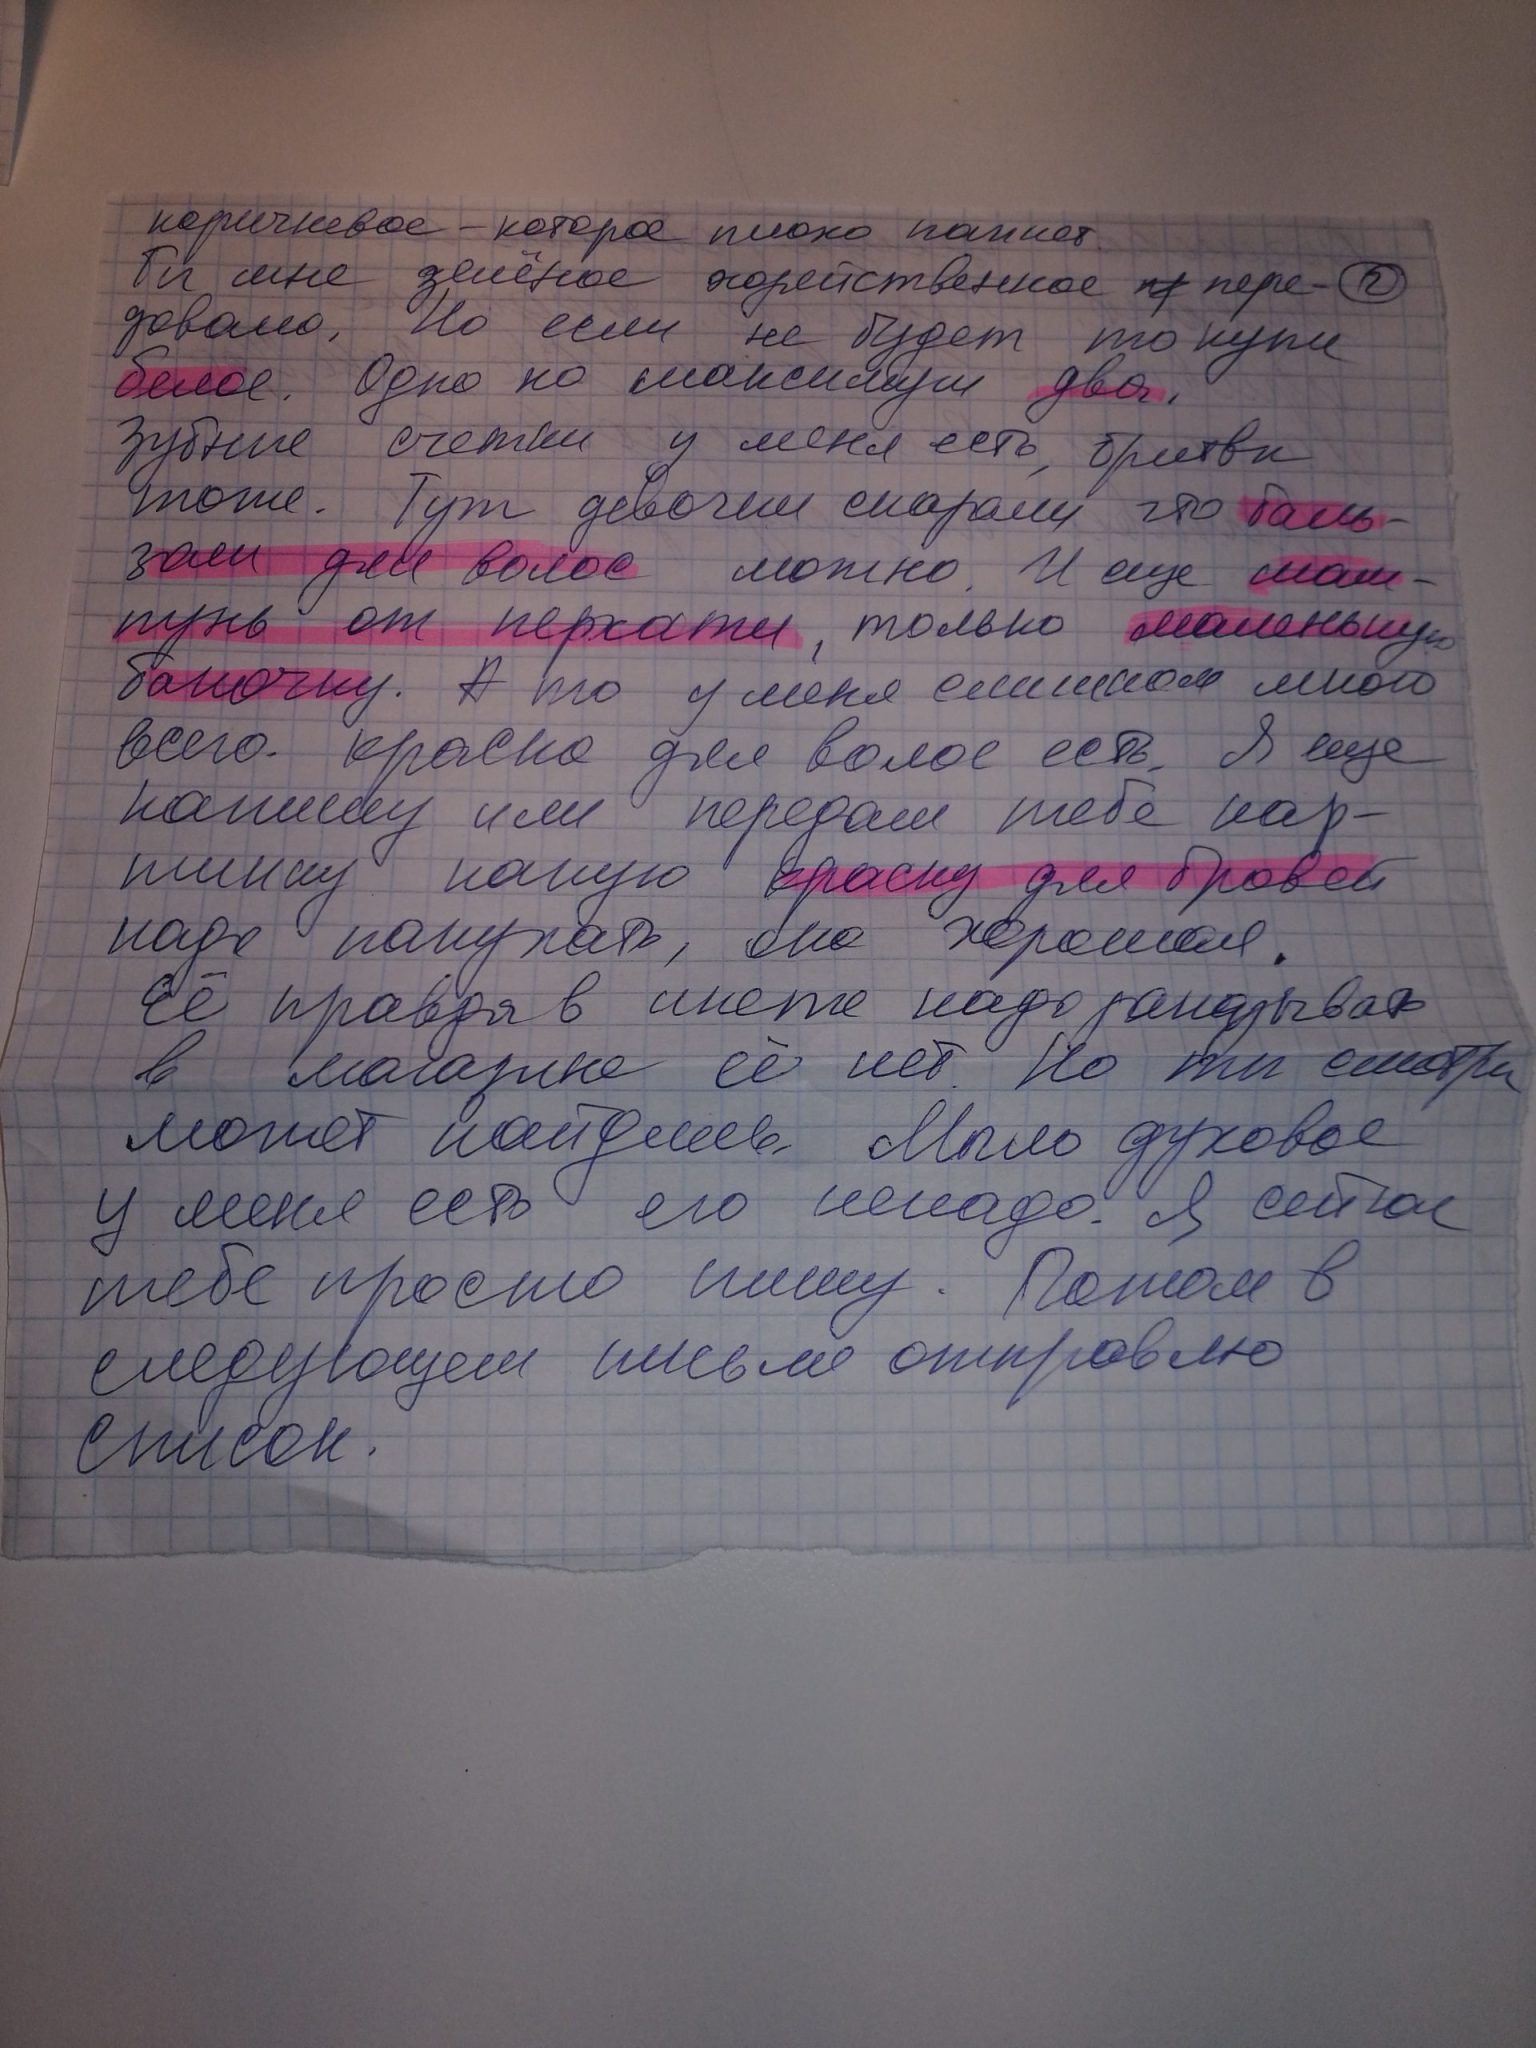 коричневое - которое плохо пахнет.
Ты мне зелёное хозяйственное пере- ②
довала. Но если не будет то купи
белое. Одно но максимум два.
Зубные счетки у меня есть, бритвы
тоже. Тут девочки сказали что баль-
зам для волос можно. И еще шам-
пунь от перхати, только маленькую
баночку. А то у меня слишком много
всего. краска для волос есть. Я еще
напишу или передам тебе кар-
тинку какую краску для бровей
надо покупать, она хорошая.
Её правда в инете надо заказывать
в магазине её нет. Но ты смотри
может найдешь. Мыло духовое
у меня есть его ненадо. Я сейчас
тебе просто пишу. Потом в
следующем письме отправлю
список.